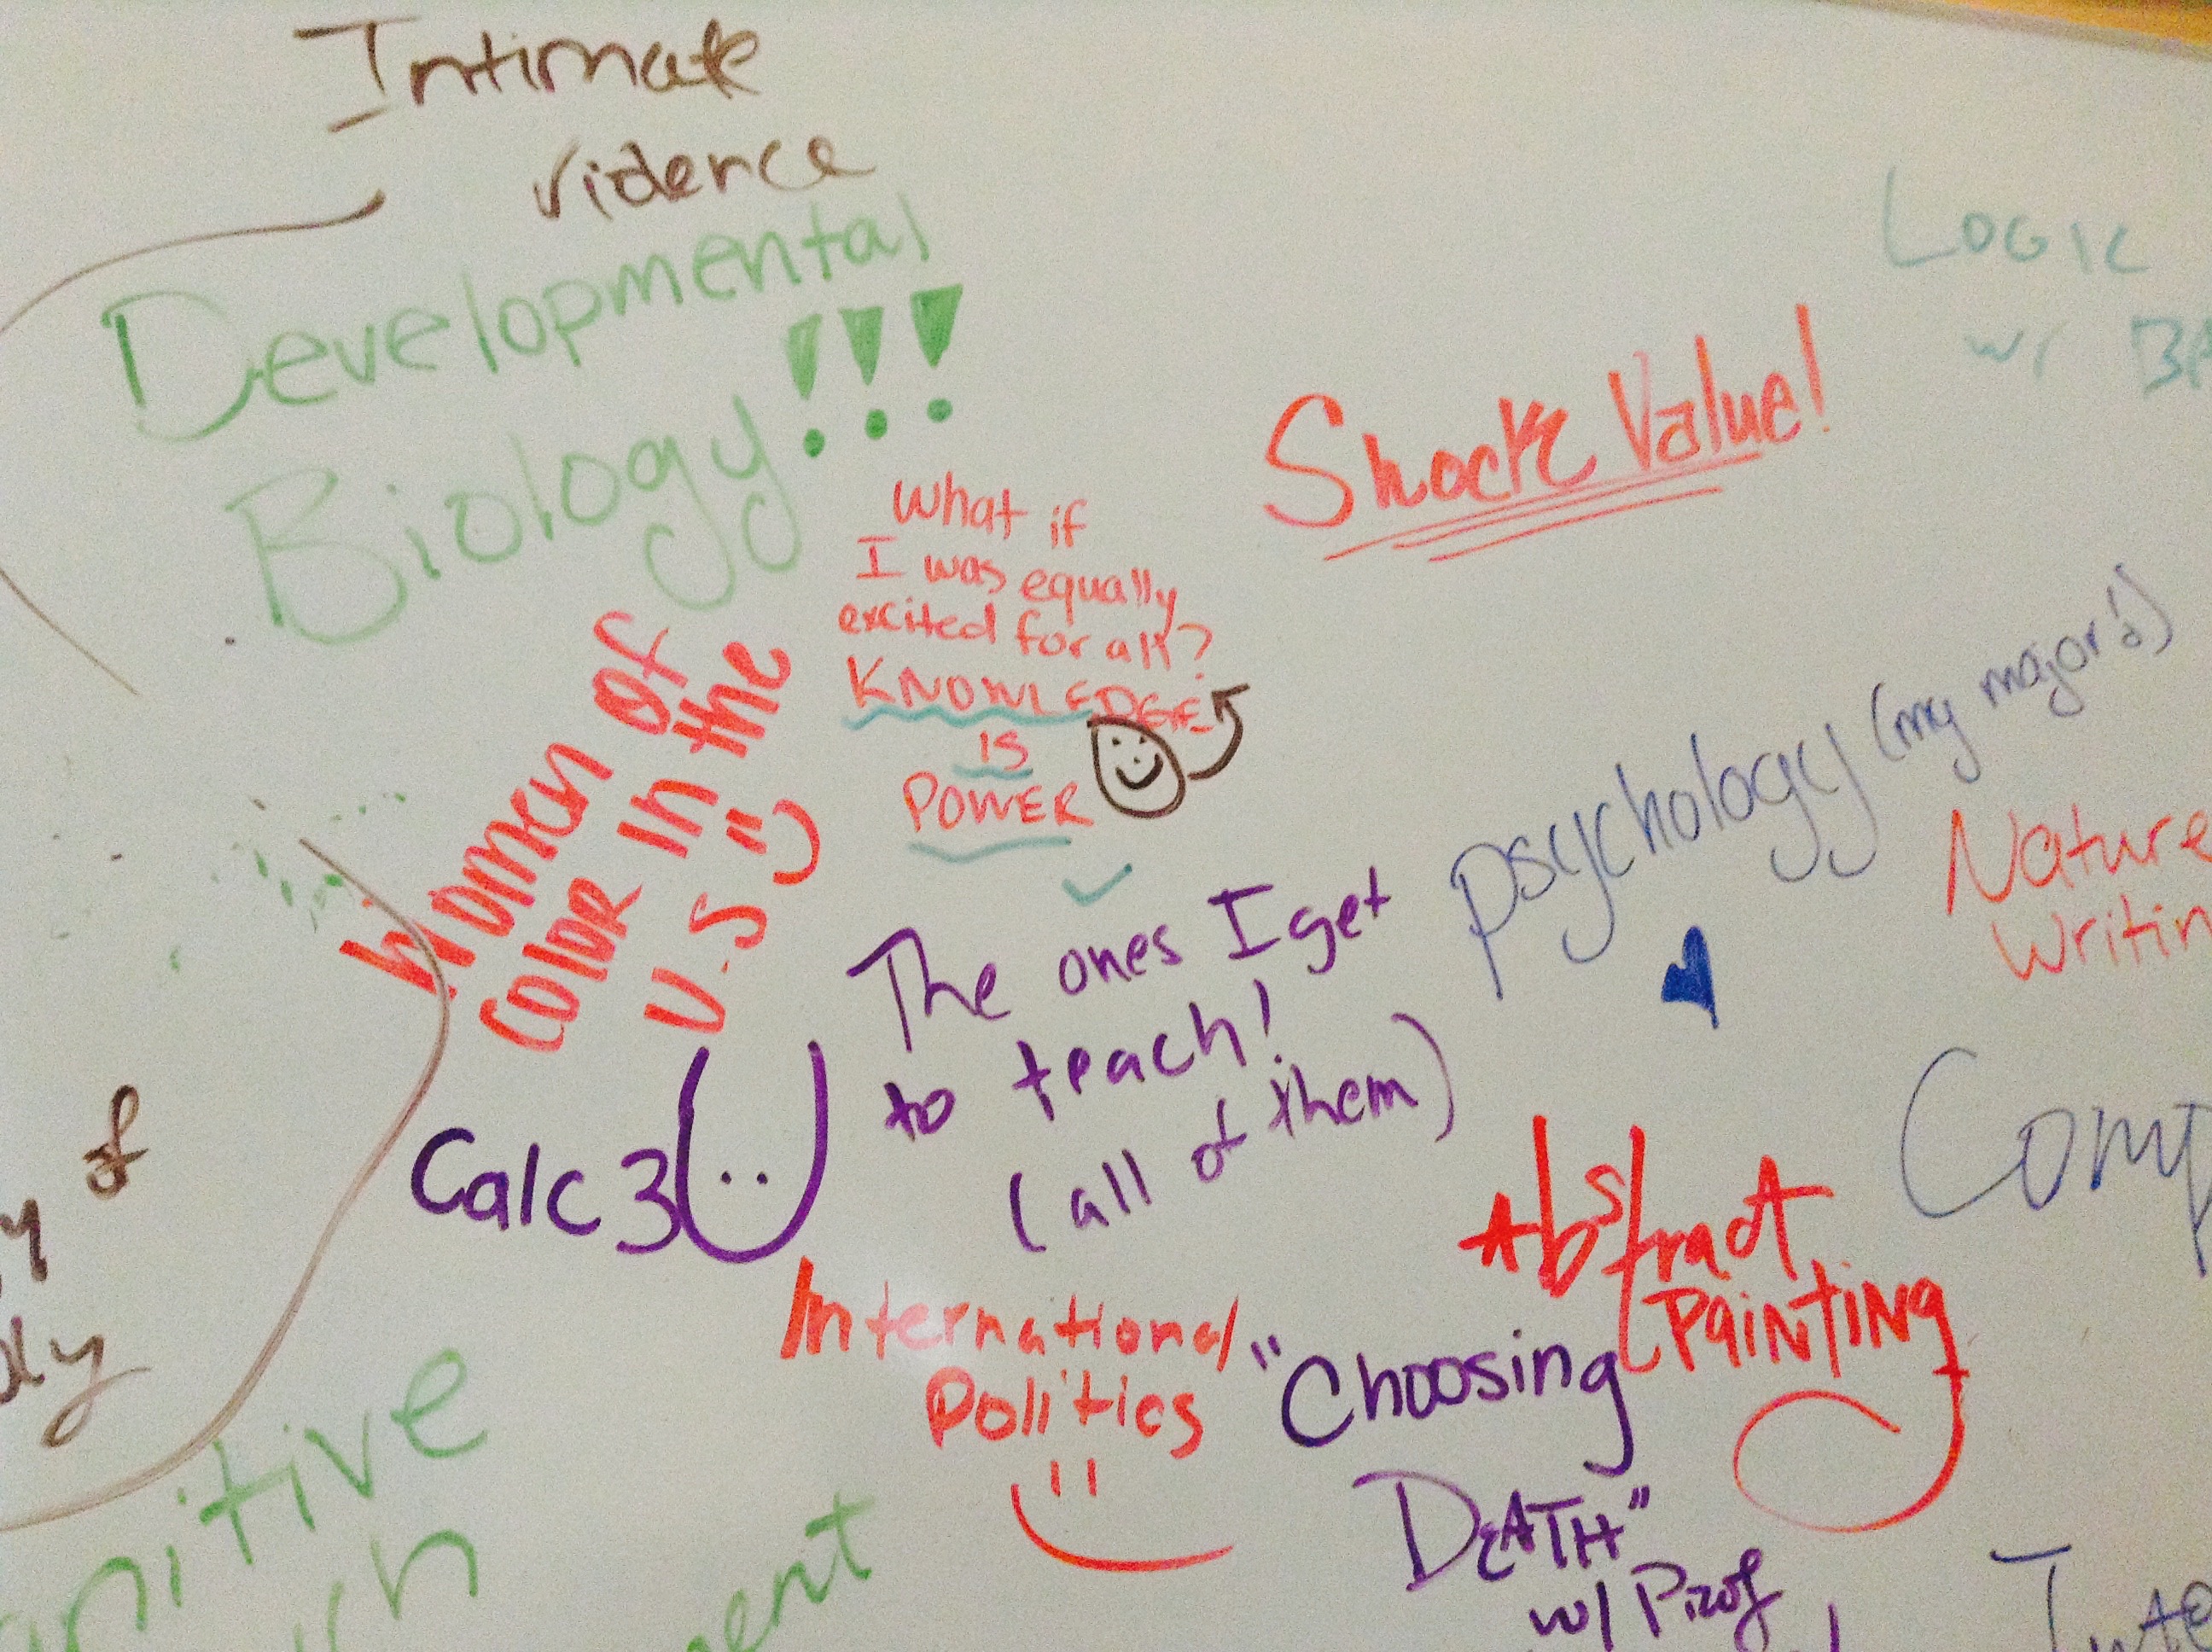 Intimate
vidence
Developmental
Biology!!!
Logic
w/
Shock Value!
What if
I was equally
excited for all?
KNOWLEDGE
IS
POWER
Women of
Color in the
U.S
psychology (my major!)
Nature
Writin
The ones I get
to teach!
(all of them)
Calc 3
Comp
Abstract
Painting
International
Politics
"Choosing
DEATH"
w/ Prof
of
nitive
ent